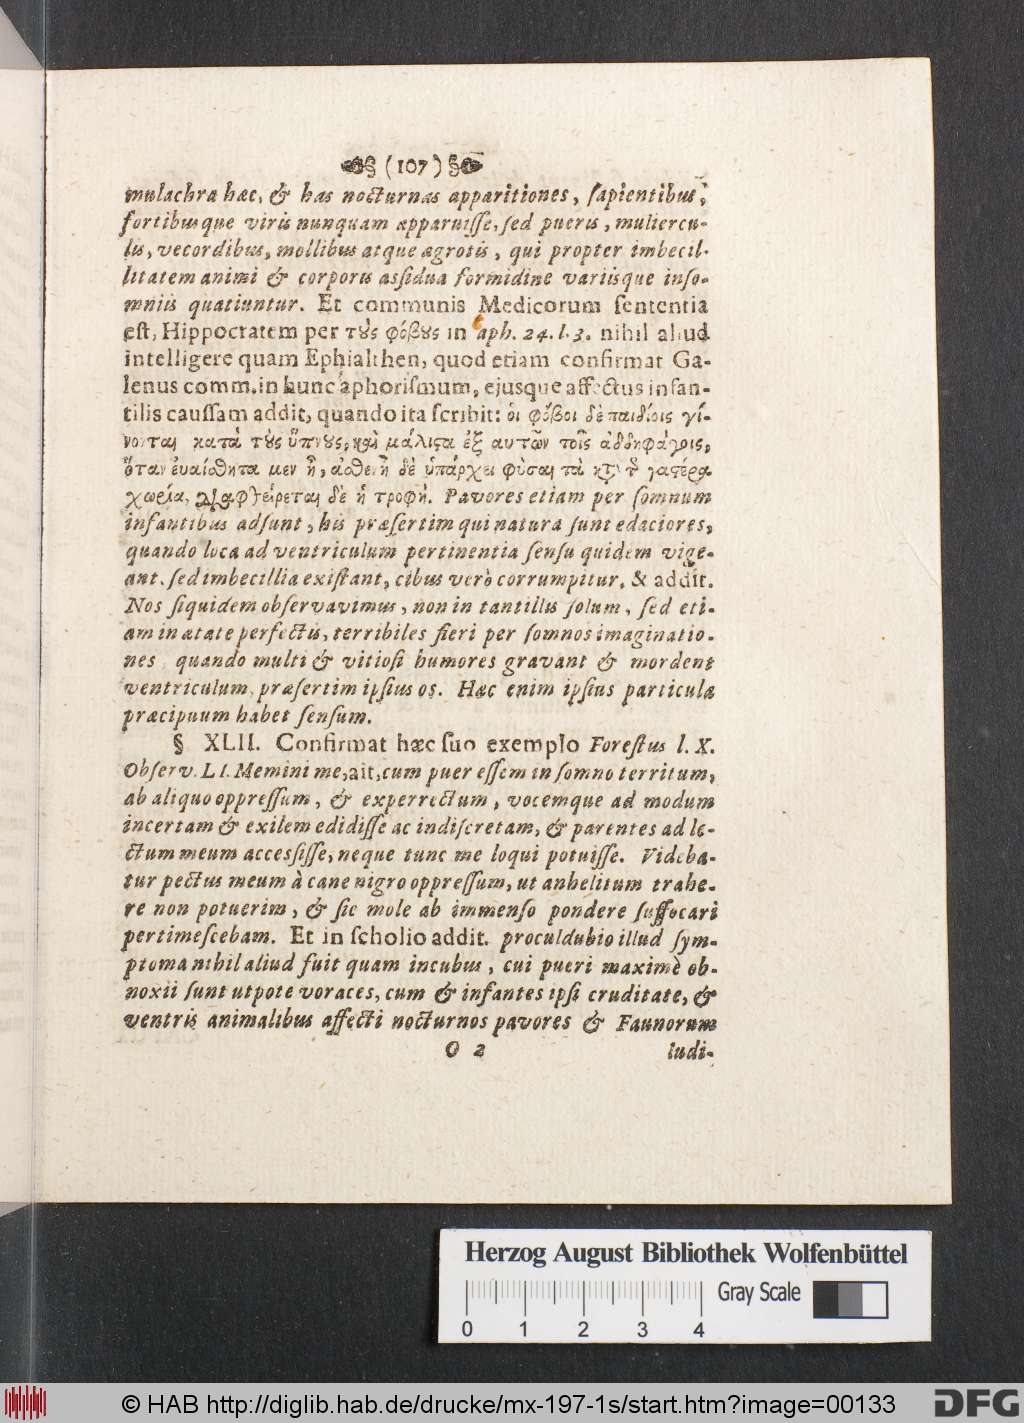 (107)
mulachra hæc, & has nocturnas apparitiones, ſapientibus,
fortibusque viris nunquam apparuiſſe, ſed pueris, muliercu-
lis, vecordibus, mollibus atque ægrotis, qui propter imbecil-
litatem animi & corporis aſſidua formidine variisque inſo-
mniis quatiuntur. Et communis Medicorum ſententia
eſt, Hippocratem per τȣ̀ς φόβȣς in aph. 24. l. 3. nihil aliud
intelligere quam Ephialthen, quod etiam confirmat Ga-
lenus comm. in hunc aphoriſmum, ejusque affectus infan-
tilis cauſſam addit, quando ita ſcribit: ὁι φόβοι δὲ παιδίοις γί-
νονται κατὰ τȣ̀ς ὕπνȣς, καὶ μάλιϛα ἐξ αυτῶν τοῖς ἀδδηφάγοις,
ὅταν ἐυαίσθητα μεν ἦ, ἀσθενῆ δὲ ὑπάρχει φὺσαι τὰ κτ τ γαϛέρα
χωρία, διαφθείρεται δὲ ἡ τροφή. Pavores etiam per ſomnum
infantibus adſunt, his præſertim qui natura ſunt edaciores,
quando loca ad ventriculum pertinentia ſenſu quidem vige-
ant, ſed imbecillia exiſtant, cibus verò corrumpitur, & addit.
Nos ſiquidem obſervavimus, non in tantillis ſolum, ſed eti-
am in ætate perfectis, terribiles fieri per ſomnos imaginatio-
nes, quando multi & vitioſi humores gravant & mordent
ventriculum, præſertim ipſius os. Hæc enim ipſius particula
præcipuum habet ſenſum.
§ XLII. Confirmat hæc ſuo exemplo Foreſtus l. X.
Obſerv. LI. Memini me, ait, cum puer eſſem in ſomno territum,
ab aliquo oppreſſum, & experrectum, vocemque ad modum
incertam & exilem edidiſſe ac indiſcretam, & parentes ad le-
ctum meum acceſſiſſe, neque tunc me loqui potuiſſe. Videba-
tur pectus meum à cane nigro oppreſſum, ut anhelitum trahe-
re non potuerim, & ſic mole ab immenſo pondere ſuffocari
pertimeſcebam. Et in ſcholio addit. proculdubio illud ſym-
ptoma nihil aliud fuit quam incubus, cui pueri maximè ob-
noxii ſunt utpote voraces, cum & infantes ipſi cruditate, &
ventris animalibus affecti nocturnos pavores & Faunorum
O 2 ludi-
Herzog August Bibliothek Wolfenbüttel
Gray Scale
0 1 2 3 4
© HAB http://diglib.hab.de/drucke/mx-197-1s/start.htm?image=00133
DFG